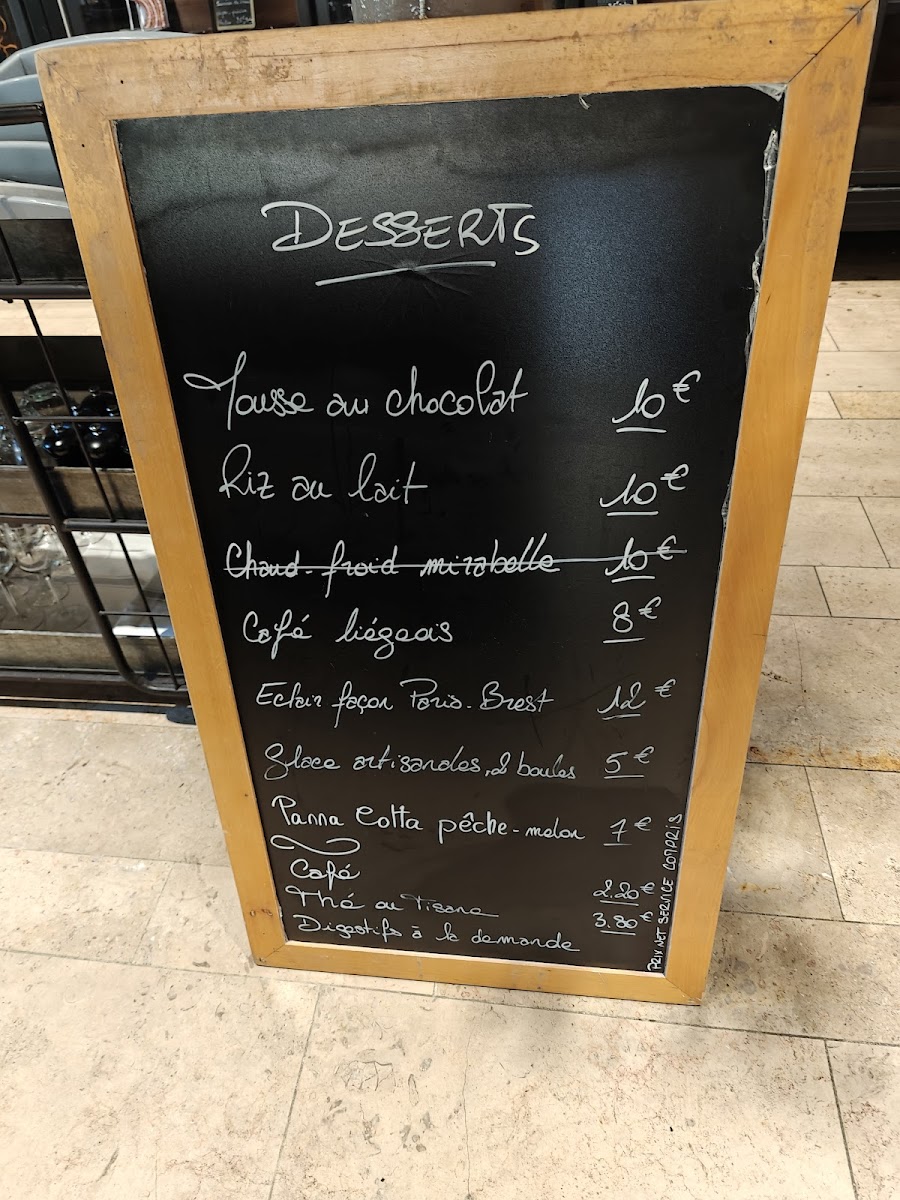 DESSERTS
Mousse au chocolat 10€
Riz au lait 10€
Chaud-froid mirabelle 10€
Café liégeois 8€
Eclair façon Paris-Brest 12€
Glace artisanales, 2 boules 5€
Panna Cotta pêche-melon 7€
Café 2.20€
Thé ou Tisane 3.80€
Digestifs à la demande
PRIX NET SERVICE COMPRIS